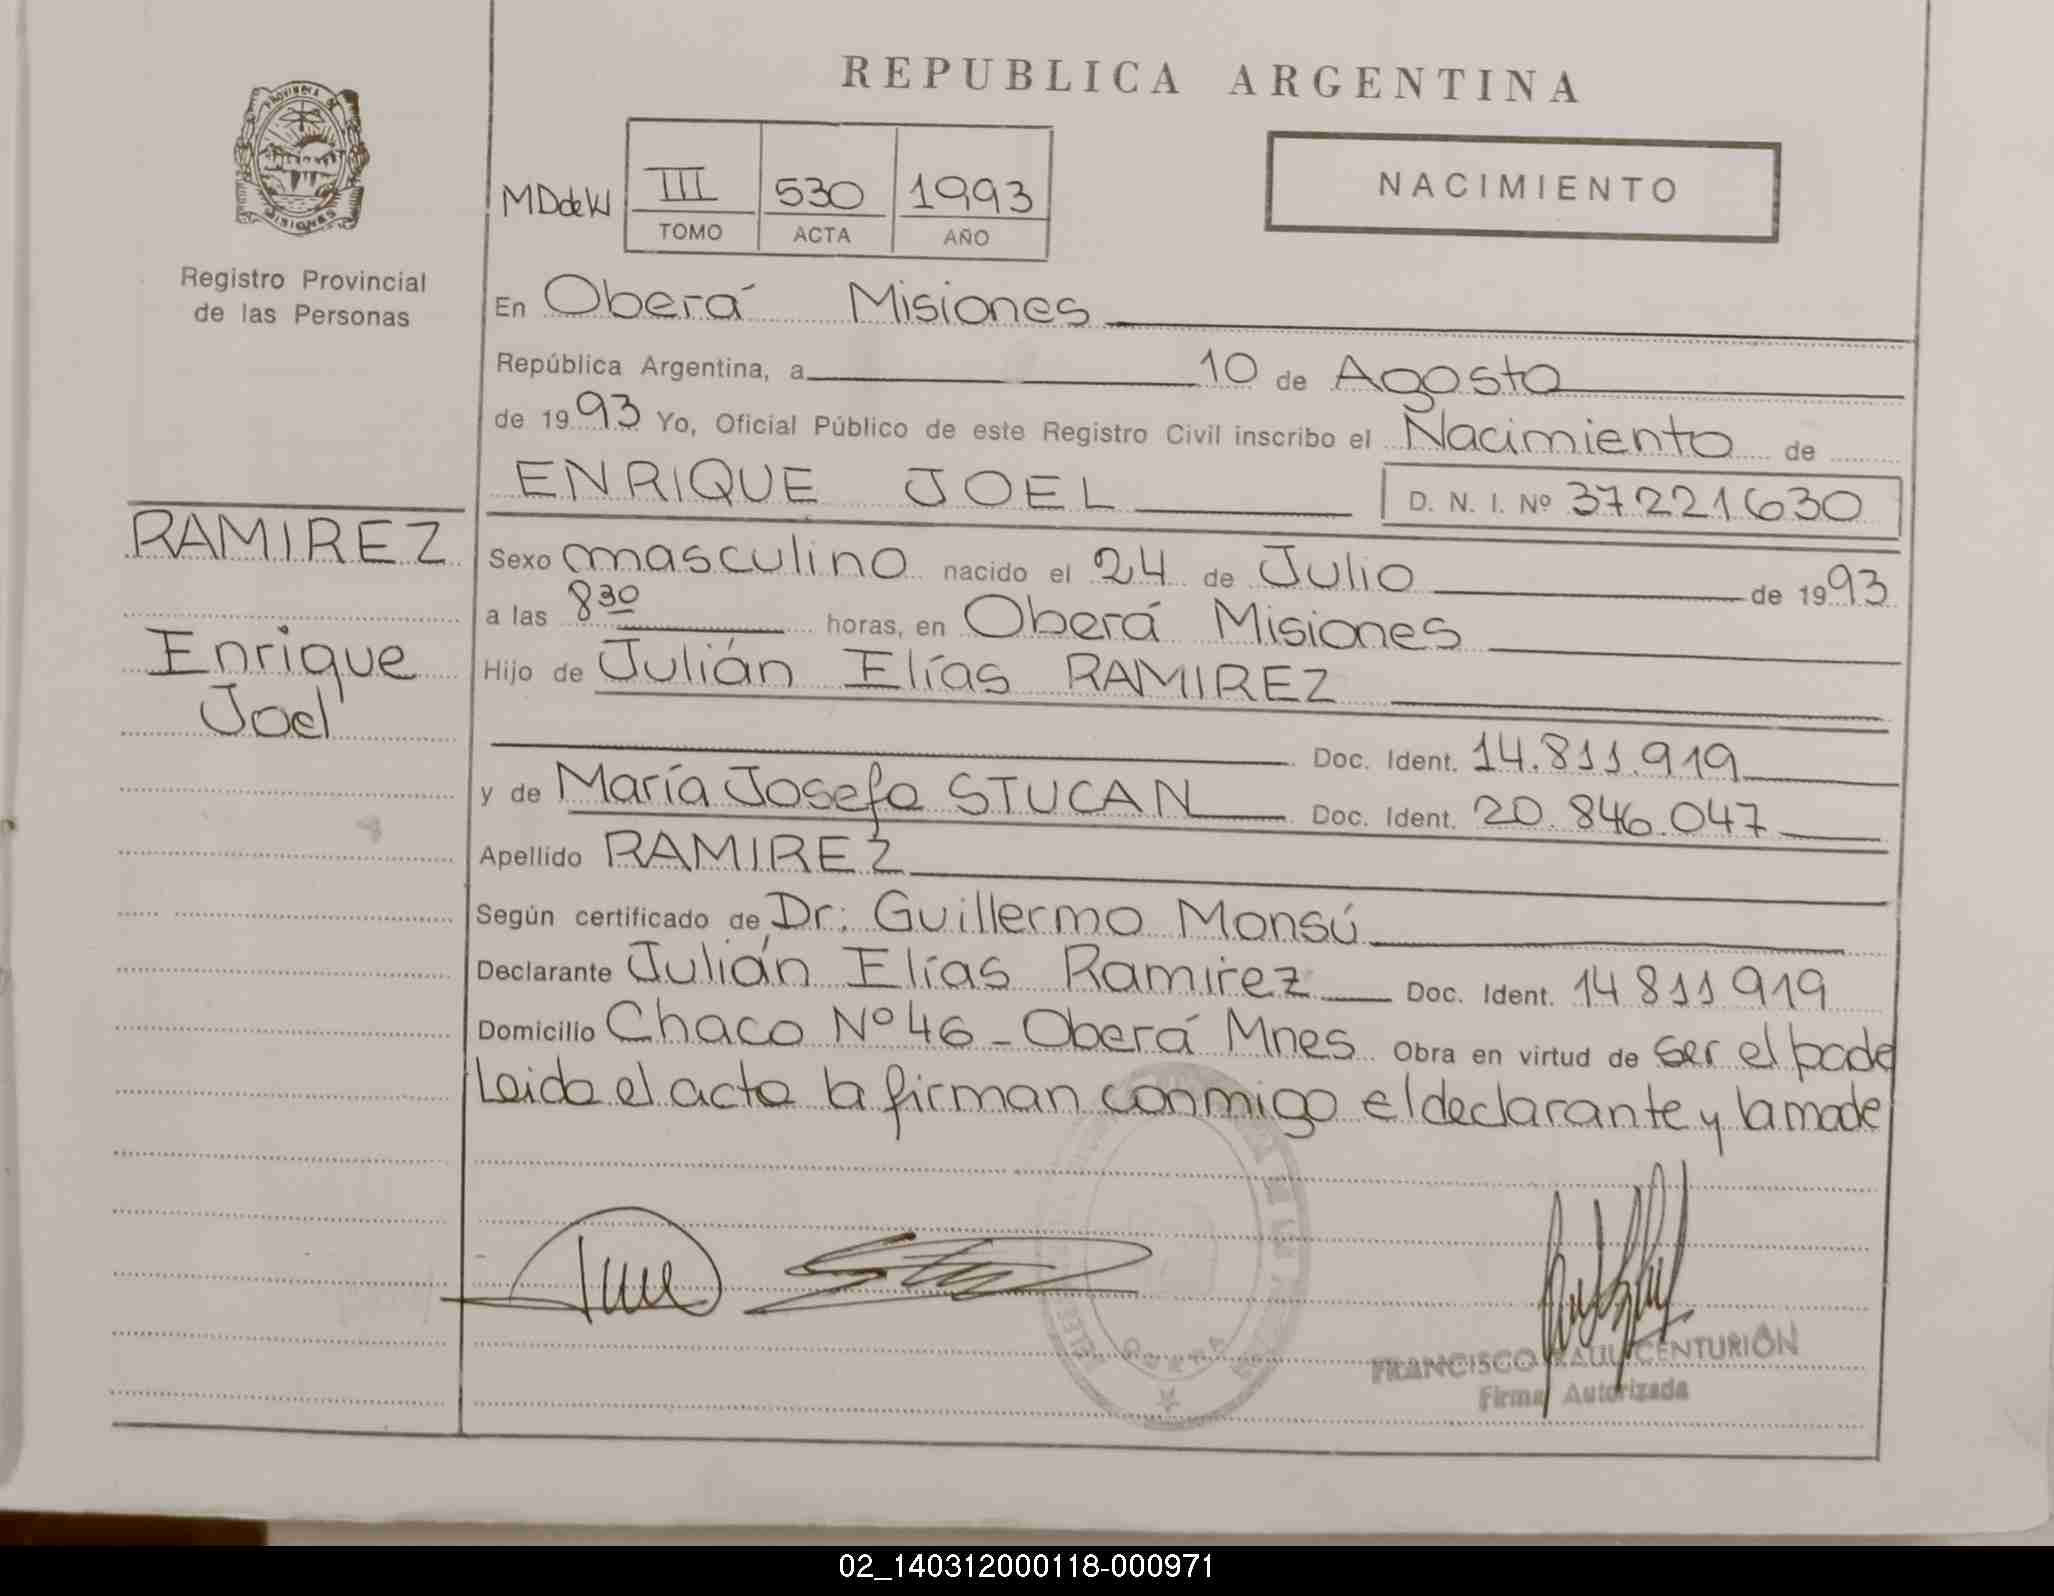 REPUBLICA ARGENTINA
PROVINCIA DE
MISIONES
Registro Provincial
de las Personas
MDdeW
III 530 1993
TOMO ACTA AÑO
NACIMIENTO
En Oberá Misiones
República Argentina, a 10 de Agosto
de 1993 Yo, Oficial Público de este Registro Civil inscribo el Nacimiento de
ENRIQUE JOEL D. N. I. Nº 37221630
RAMIREZ
Enrique
Joel
Sexo masculino nacido el 24 de Julio de 1993
a las 8 30 horas, en Oberá Misiones
Hijo de Julián Elías RAMIREZ
Doc. Ident. 14.811.919
y de María Josefa STUCAN Doc. Ident. 20.846.047
Apellido RAMIREZ
Según certificado de Dr: Guillermo Monsú
Declarante Julián Elías Ramirez Doc. Ident. 14 811 919
Domicilio Chaco Nº 46 - Oberá Mnes Obra en virtud de ser el padre
Leida el acta la firman conmigo el declarante y la madre
OBERA
FRANCISCO RAUL CENTURIÓN
Firma Autorizada
02_140312000118-000971